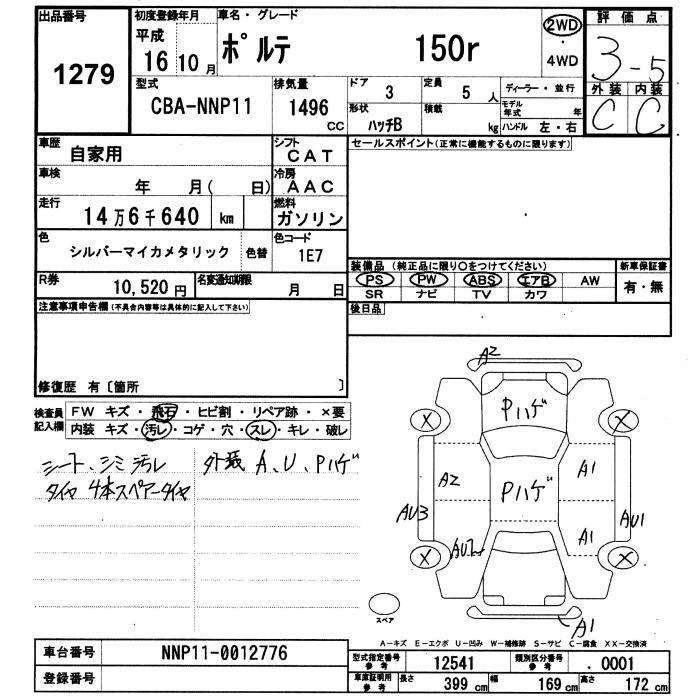 出品番号
1279
初度登録年月
平成
16年10月
車名・グレード
ポルテ 150r
2WD
・
4WD
評価点
3-5
外装 内装
C C
型式
CBA-NNP11
排気量
1496
CC
ドア
3
定員
5 人
ディーラー・並行
モデル年式 年
形状
ハッチB
積載
kg
ハンドル 左・右
車歴
自家用
シフト
CAT
車検
年 月( 日)
冷房
AAC
走行
14万6千640 km
燃料
ガソリン
色
シルバーマイカメタリック
色替
色コード
1E7
R券
10,520円
名変通知期限
月 日
セールスポイント(正常に機能するものに限ります)
装備品 (純正品に限り○をつけてください)
PS PW ABS エアB AW
SR ナビ TV カワ
新車保証書
有・無
後日品
注意事項申告欄(不具合内容等は具体的に記入して下さい)
修復歴 有〔箇所 〕
検査員記入欄
FW キズ・飛石・ヒビ割・リペア跡・×要
内装 キズ・汚レ・コゲ・穴・スレ・キレ・破レ
シート、シミ汚レ
タイヤ 4本スペアータイヤ
外装 A、U、Pハゲ
A2
Pハゲ
X
X
A2
Pハゲ
A1
AU3
AU1
AU2
A1
X
X
スペア
A1
A-キズ E-エクボ U-凹み W-補修跡 S-サビ C-腐食 XX-交換済
車台番号
NNP11-0012776
登録番号
型式指定番号
参考
12541
類別区分番号
参考
.0001
車庫証明用
参考
長さ 399 cm
幅 169 cm
高さ 172 cm